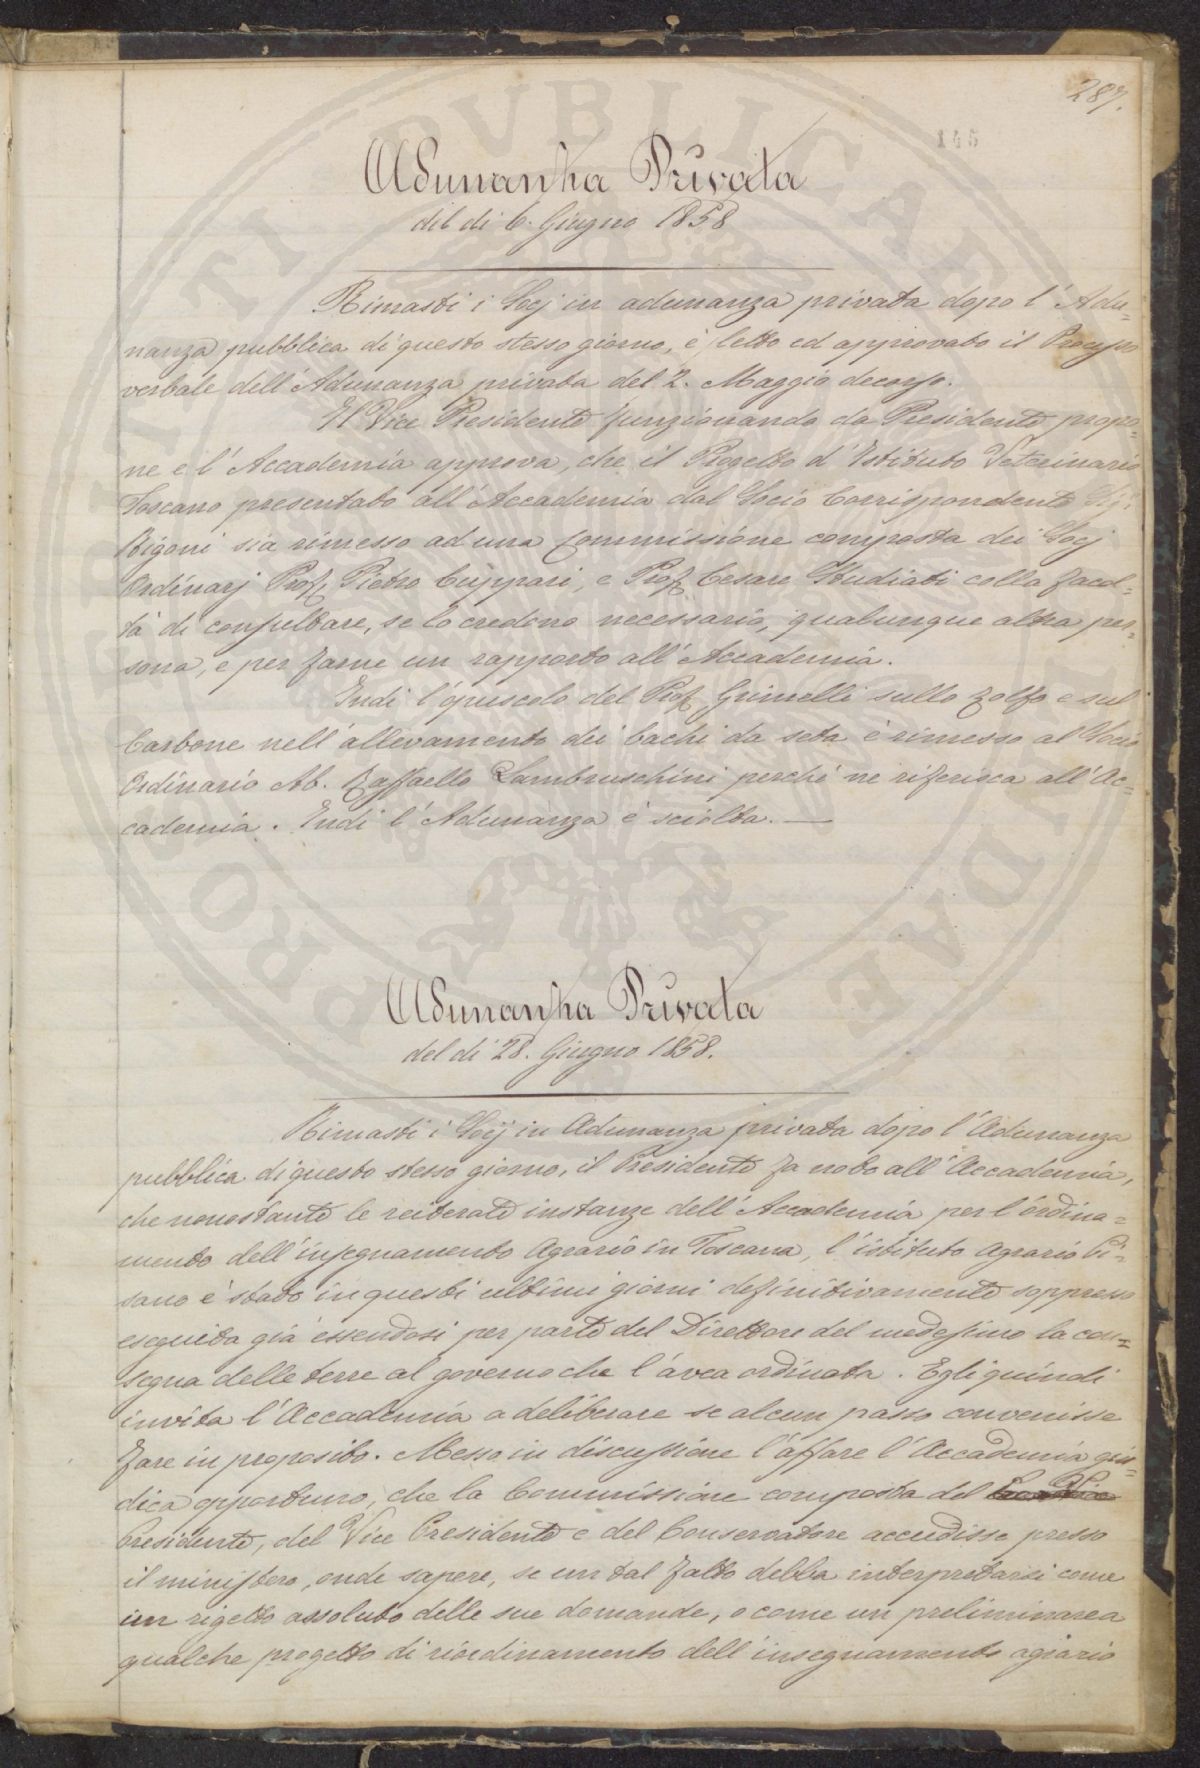 287.
145
Adunanza Privata
del dì 6. Giugno 1858
Rimasti i Socj in adunanza privata dopo l'Adu-
nanza pubblica di questo stesso giorno, è letto ed approvato il Processo
verbale dell'Adunanza privata del 2. Maggio decorso.
Il Vice Presidente funzionando da Presidente propo-
ne e l'Accademia approva, che il Progetto d'Istituto Veterinario
Toscano presentato all'Accademia dal Socio Corrispondente Sig.
Rigoni sia rimesso ad una Commissione composta dei Socj
Ordinarj Prof. Pietro Cuppari, e Prof. Cesare Studiati colla facol-
tà di consultare, se lo credono necessario, qualunque altra per-
sona, e per farne un rapporto all'Accademia.
Indi l'opuscolo del Prof. Grimelli sullo zolfo e sul
Carbone nell'allevamento dei bachi da seta è rimesso al Socio
Ordinario Ab. Raffaello Lambruschini perchè ne riferisca all'Ac-
cademia. Indi l'Adunanza è sciolta. —
Adunanza Privata
del dì 28. Giugno 1858.
Rimasti i Socij in Adunanza privata dopo l'Adunanza
pubblica di questo stesso giorno, il Presidente fa noto all'Accademia,
che nonostante le reiterate instanze dell'Accademia per l'ordina-
mento dell'insegnamento Agrario in Toscana, l'istituto Agrario Pi-
sano è stato in questi ultimi giorni definitivamente soppresso
eseguita già essendosi per parte del Direttore del medesimo la con-
segna delle terre al governo che l'avea ordinata. Egli quindi
invita l'Accademia a deliberare se alcun passo convenisse
fare in proposito. Messo in discussione l'affare l'Accademia giu-
dica opportuno, che la Commissione composta del
Presidente, del Vice Presidente e del Conservatore accudisse presso
il ministero, onde sapere, se un tal fatto debba interpretarsi come
un rigetto assoluto delle sue domande, o come un preliminare a
qualche progetto di riordinamento dell'insegnamento agrario
PROSPERITATI PUBLICAE AUGENDAE